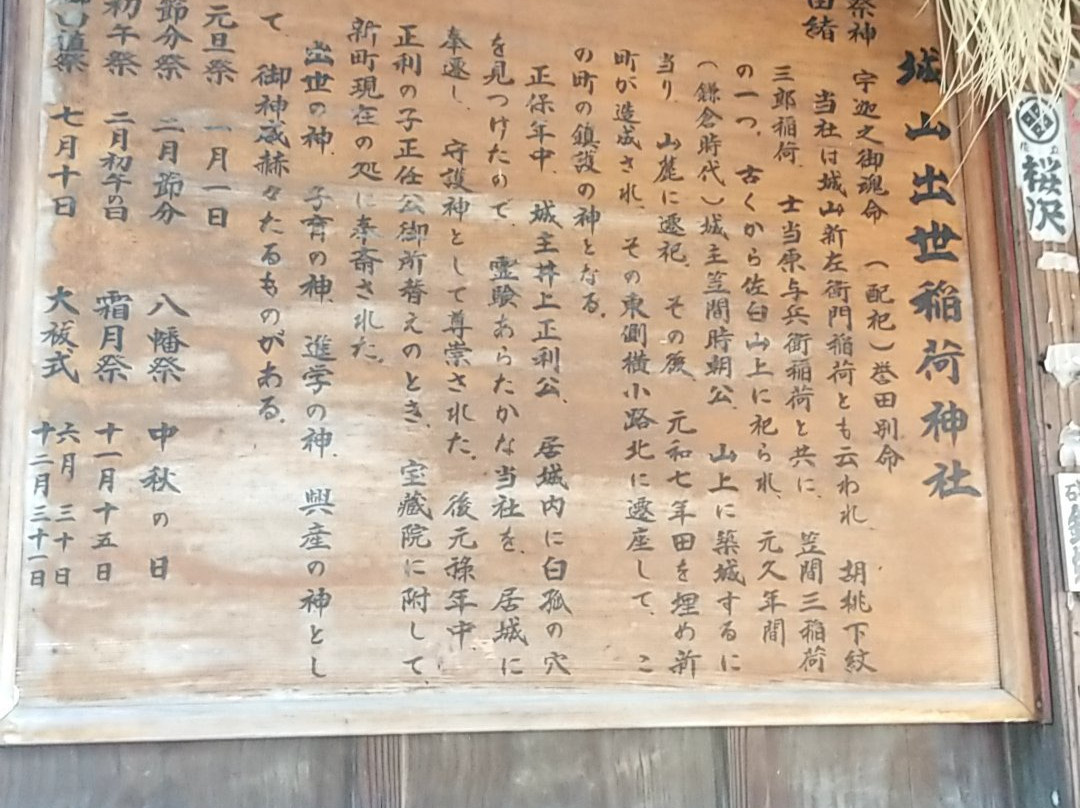 城山出世稲荷神社
祭神 宇迦之御魂命 (配祀)誉田別命
由緒 当社は城山新左衛門稲荷とも云われ、胡桃下紋
三郎稲荷、士当原与兵衛稲荷と共に、笠間三稲荷
の一つ、古くから佐白山上に祀られ、元久年間
(鎌倉時代)城主笠間時朝公、山上に築城するに
当り、山麓に遷祀、その後、元和七年田を埋め新
町が造成され、その東側横小路北に遷座して、こ
の町の鎮護の神となる。
正保年中、城主井上正利公、居城内に白狐の穴
を見つけたので、霊験あらたかな当社を、居城に
奉遷し、守護神として尊崇された。後元禄年中、
正利の子正任公御所替えのとき、宝蔵院に附して、
新町現在の処に奉斎された。
出世の神、子育の神、進学の神、興産の神とし
て、御神威赫々たるものがある。
元旦祭 一月一日
節分祭 二月節分 八幡祭 中秋の日
初午祭 二月初午の日 霜月祭 十一月十五日
道祭 七月十日 大祓式 六月三十日
十二月三十一日
桜沢